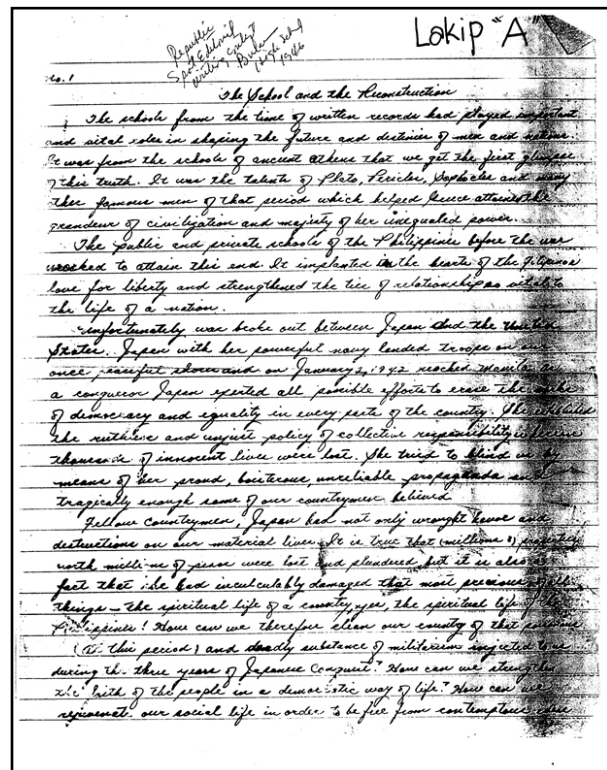 Lakip "A"
Republic
Spot Editorial
Writing Contest
High School
1946
No. 1
The School and the Reconstruction
The schools from the time of written records had played important
and vital roles in shaping the future and destinies of men and nations.
It was from the schools of ancient Athens that we get the first glimpse
of this truth. It was the talents of Plato, Pericles, Sophocles and many
other famous men of that period which helped Greece attain the
grandeur of civilization and majesty of her unequaled power.
The public and private schools of the Philippines before the war
worked to attain this end. It implanted in the hearts of the Filipinos
love for liberty and strengthened the ties of relationship so vital to
the life of a nation.
Unfortunately war broke out between Japan and the United
States. Japan with her powerful navy landed troops on our
once peaceful shores and on January 2, 1942 reached Manila. As
a conqueror Japan exerted all possible efforts to erase the
of democracy and equality in every parts of the country. She established
the ruthless and unjust policy of collective responsibility wherein
thousands of innocent lives were lost. She tried to blind us by
means of her proud, boisterous, unreliable propaganda and
tragically enough some of our countrymen believed.
Fellow countrymen, Japan had not only wrought havoc and
destructions on our material lives. It is true that (millions of) property
worth millions of pesos were lost and plundered, but it is also a
fact that she had inculculably damaged that most precious of all
things — the spiritual life of a country, yes, the spiritual life of the
Philippines! How can we therefore clean our county of that
(at this period) and deadly substance of militarism injected to us
during the three years of Japanese Conquest? How can we strengthen
the faith of the people in a democratic way of life? How can we
rejuvenate our social life in order to be free from contemptous